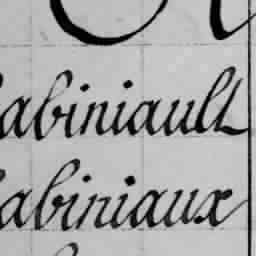 abiniault
abiniaux